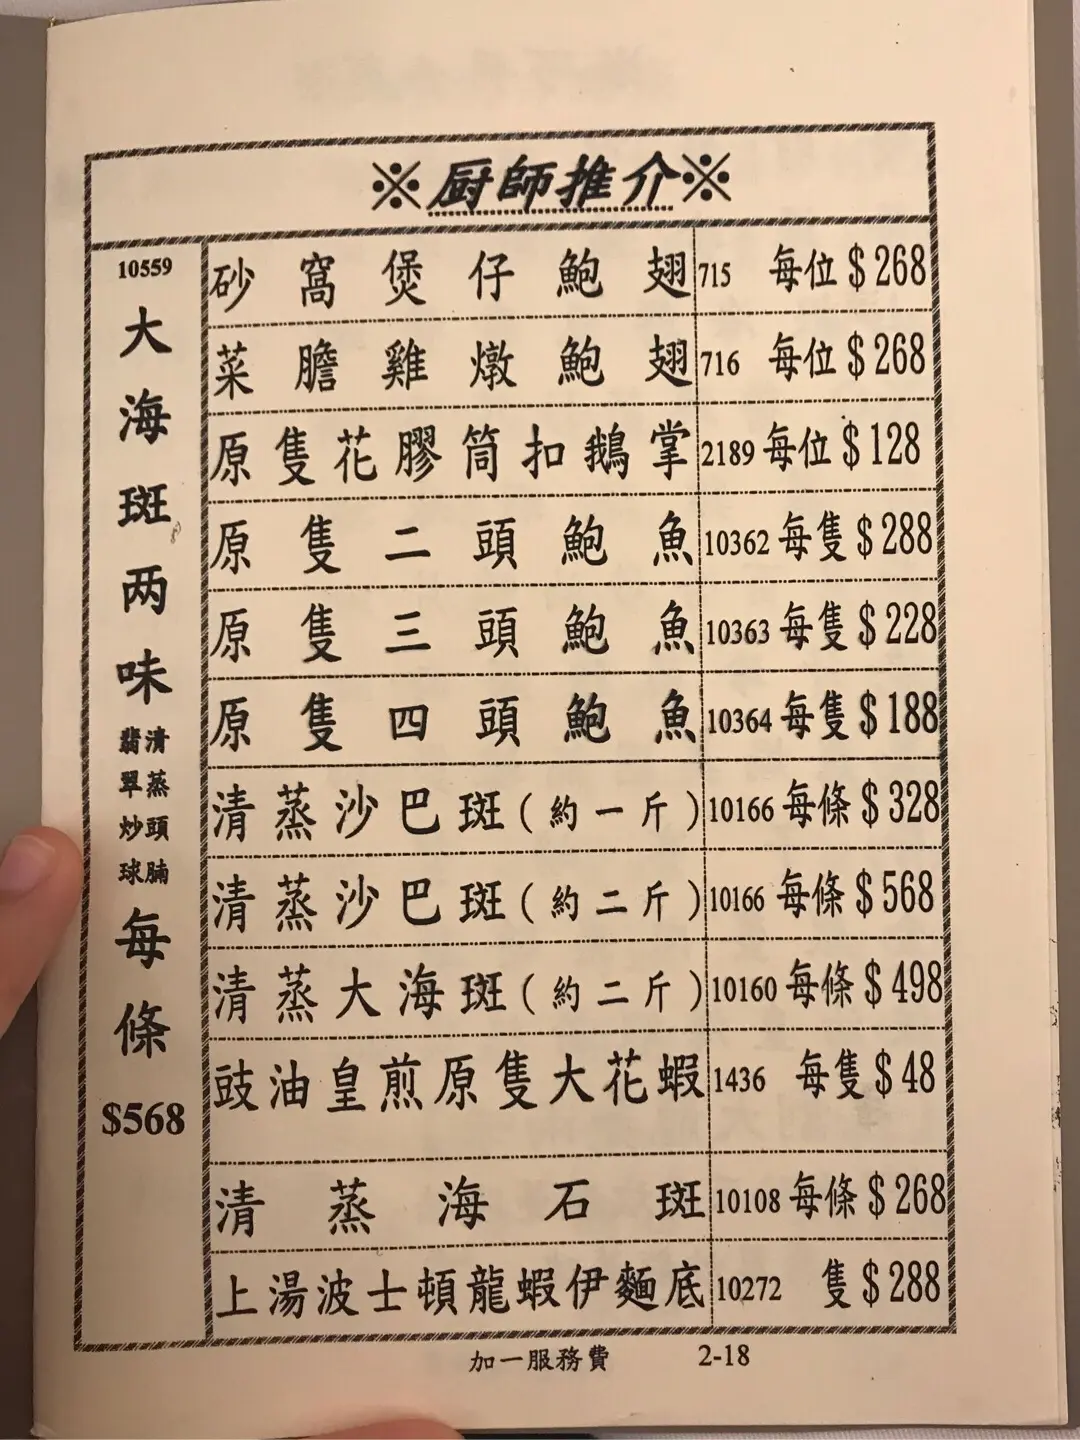 ※厨師推介※
10559
大海斑两味
清蒸頭腩
翡翠炒球
每條
$568
砂窩煲仔鮑翅 715 每位$268
菜膽雞燉鮑翅 716 每位$268
原隻花膠筒扣鵝掌 2189 每位$128
原隻二頭鮑魚 10362 每隻$288
原隻三頭鮑魚 10363 每隻$228
原隻四頭鮑魚 10364 每隻$188
清蒸沙巴斑(約一斤) 10166 每條$328
清蒸沙巴斑(約二斤) 10166 每條$568
清蒸大海斑(約二斤) 10160 每條$498
豉油皇煎原隻大花蝦 1436 每隻$48
清蒸海石斑 10108 每條$268
上湯波士頓龍蝦伊麵底 10272 隻$288
加一服務費 2-18